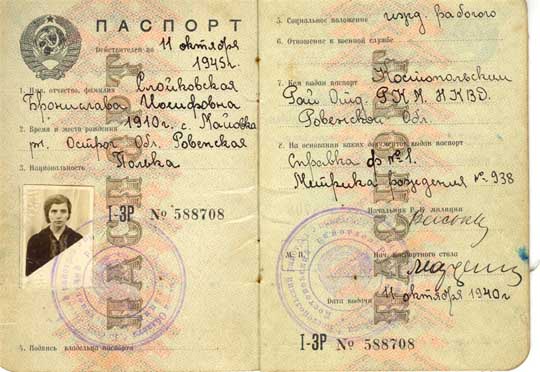 ПАСПОРТ
Действителен до 11 октября
1945г.
1. Имя, отчество, фамилия Слойковская
Бронислава Иосифовна
2. Время и место рождения 1910г. с. Майовка
Острог Обл. Ровенская
3. Национальность Полька
I-ЗР № 588708
4. Подпись владельца паспорта
5. Социальное положение ижд. рабочего
6. Отношение к военной службе
7. Кем выдан паспорт
Рай Отд. Р.К.М. НКВД.
Ровенской Обл.
8. На основании каких документов выдан паспорт
Справка ф №1.
Метрика рождения № 938
Начальник Р. К. милиции
М. П.
Нач. паспортного стола
Дата выдачи 11 октября 1940г
I-ЗР № 588708